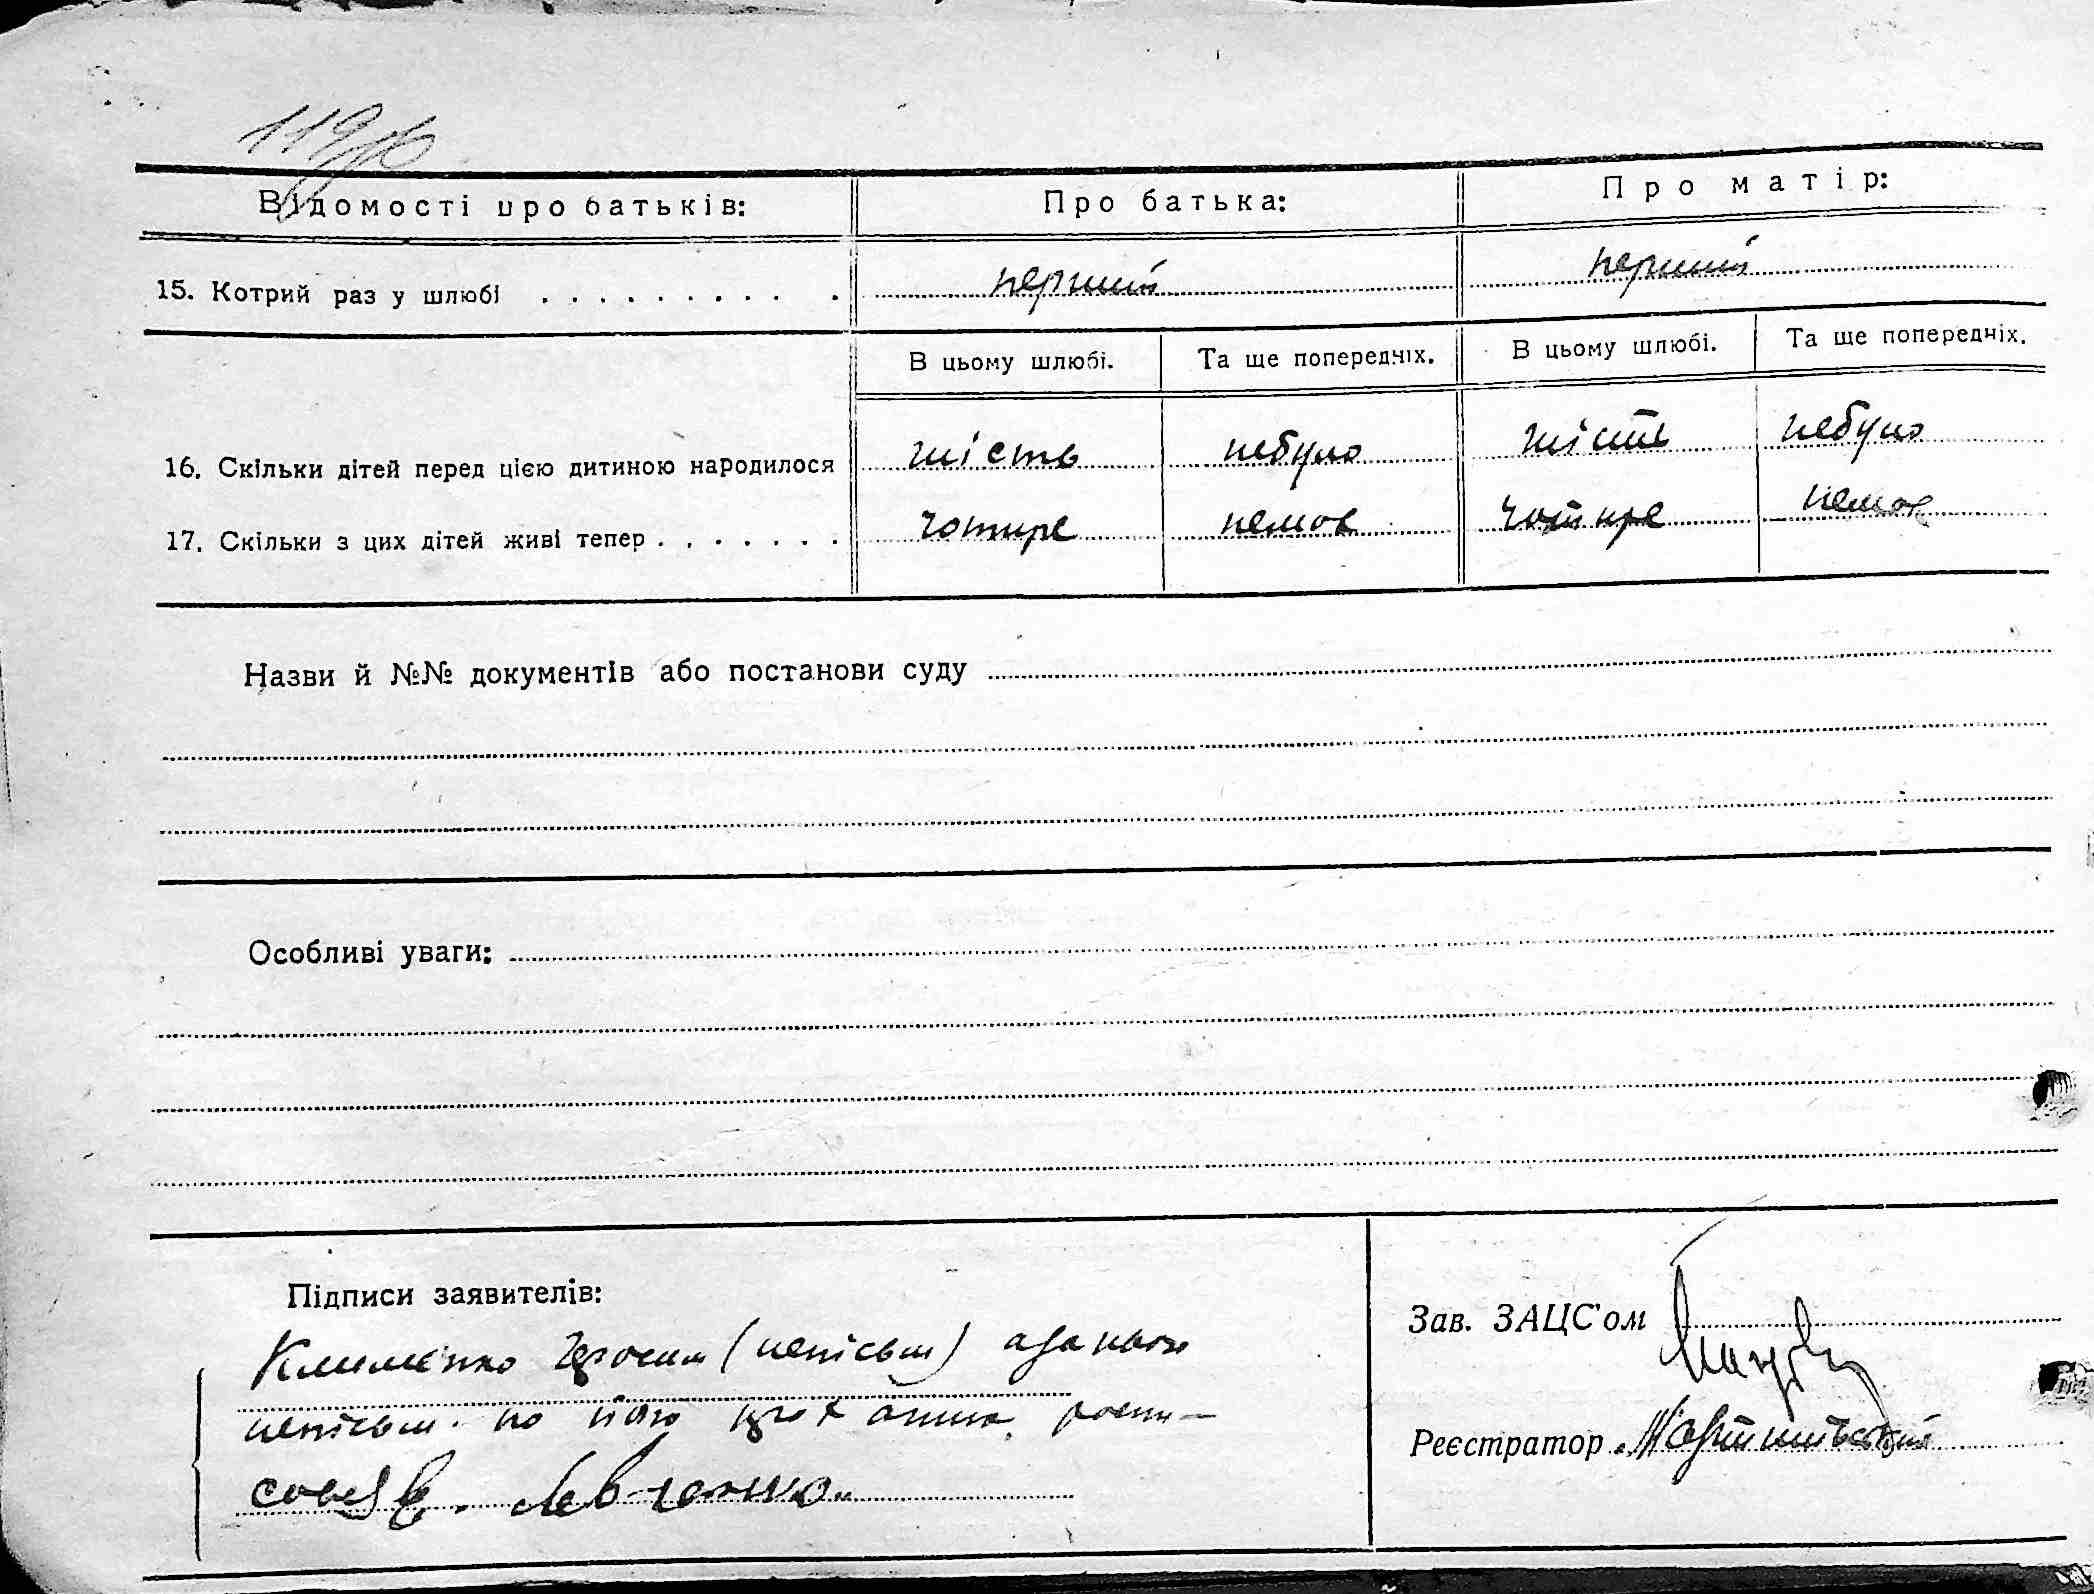 Відомості про батьків: Про батька: Про матір:
15. Котрий раз у шлюбі . . . . . . . . . . перший перший
В цьому шлюбі. Та ще попередніх. В цьому шлюбі. Та ще попередніх.
16. Скільки дітей перед цією дитиною народилося шість небуло шість небуло
17. Скільки з цих дітей живі тепер . . . . . . . чотире немає чотире немає
Назви й №№ документів або постанови суду
Особливі уваги:
Підписи заявителів:
Зав. ЗАЦС'ом
Клименко (неписьм)
неписьм. по його
Левченко
Реєстратор